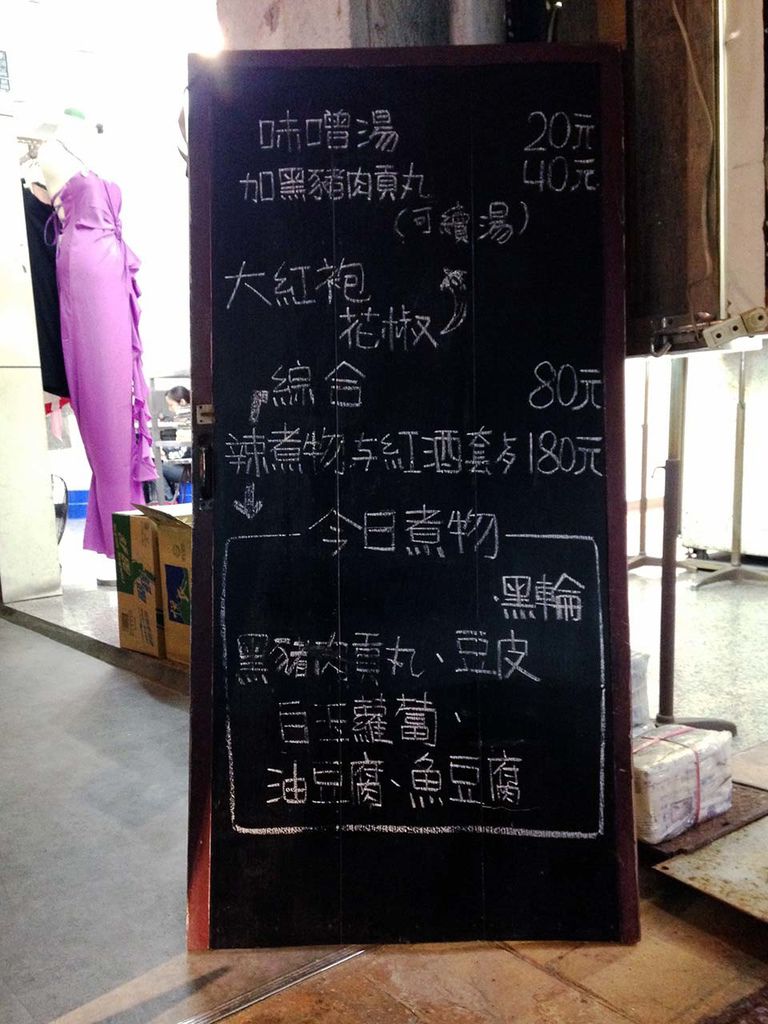 味噌湯 20元
加黑豬肉貢丸 40元
(可續湯)
大紅袍
花椒
綜合 80元
辣煮物与紅酒套歺 180元
今日煮物
黑輪
黑豬肉貢丸、豆皮
白玉蘿蔔、
油豆腐、魚豆腐